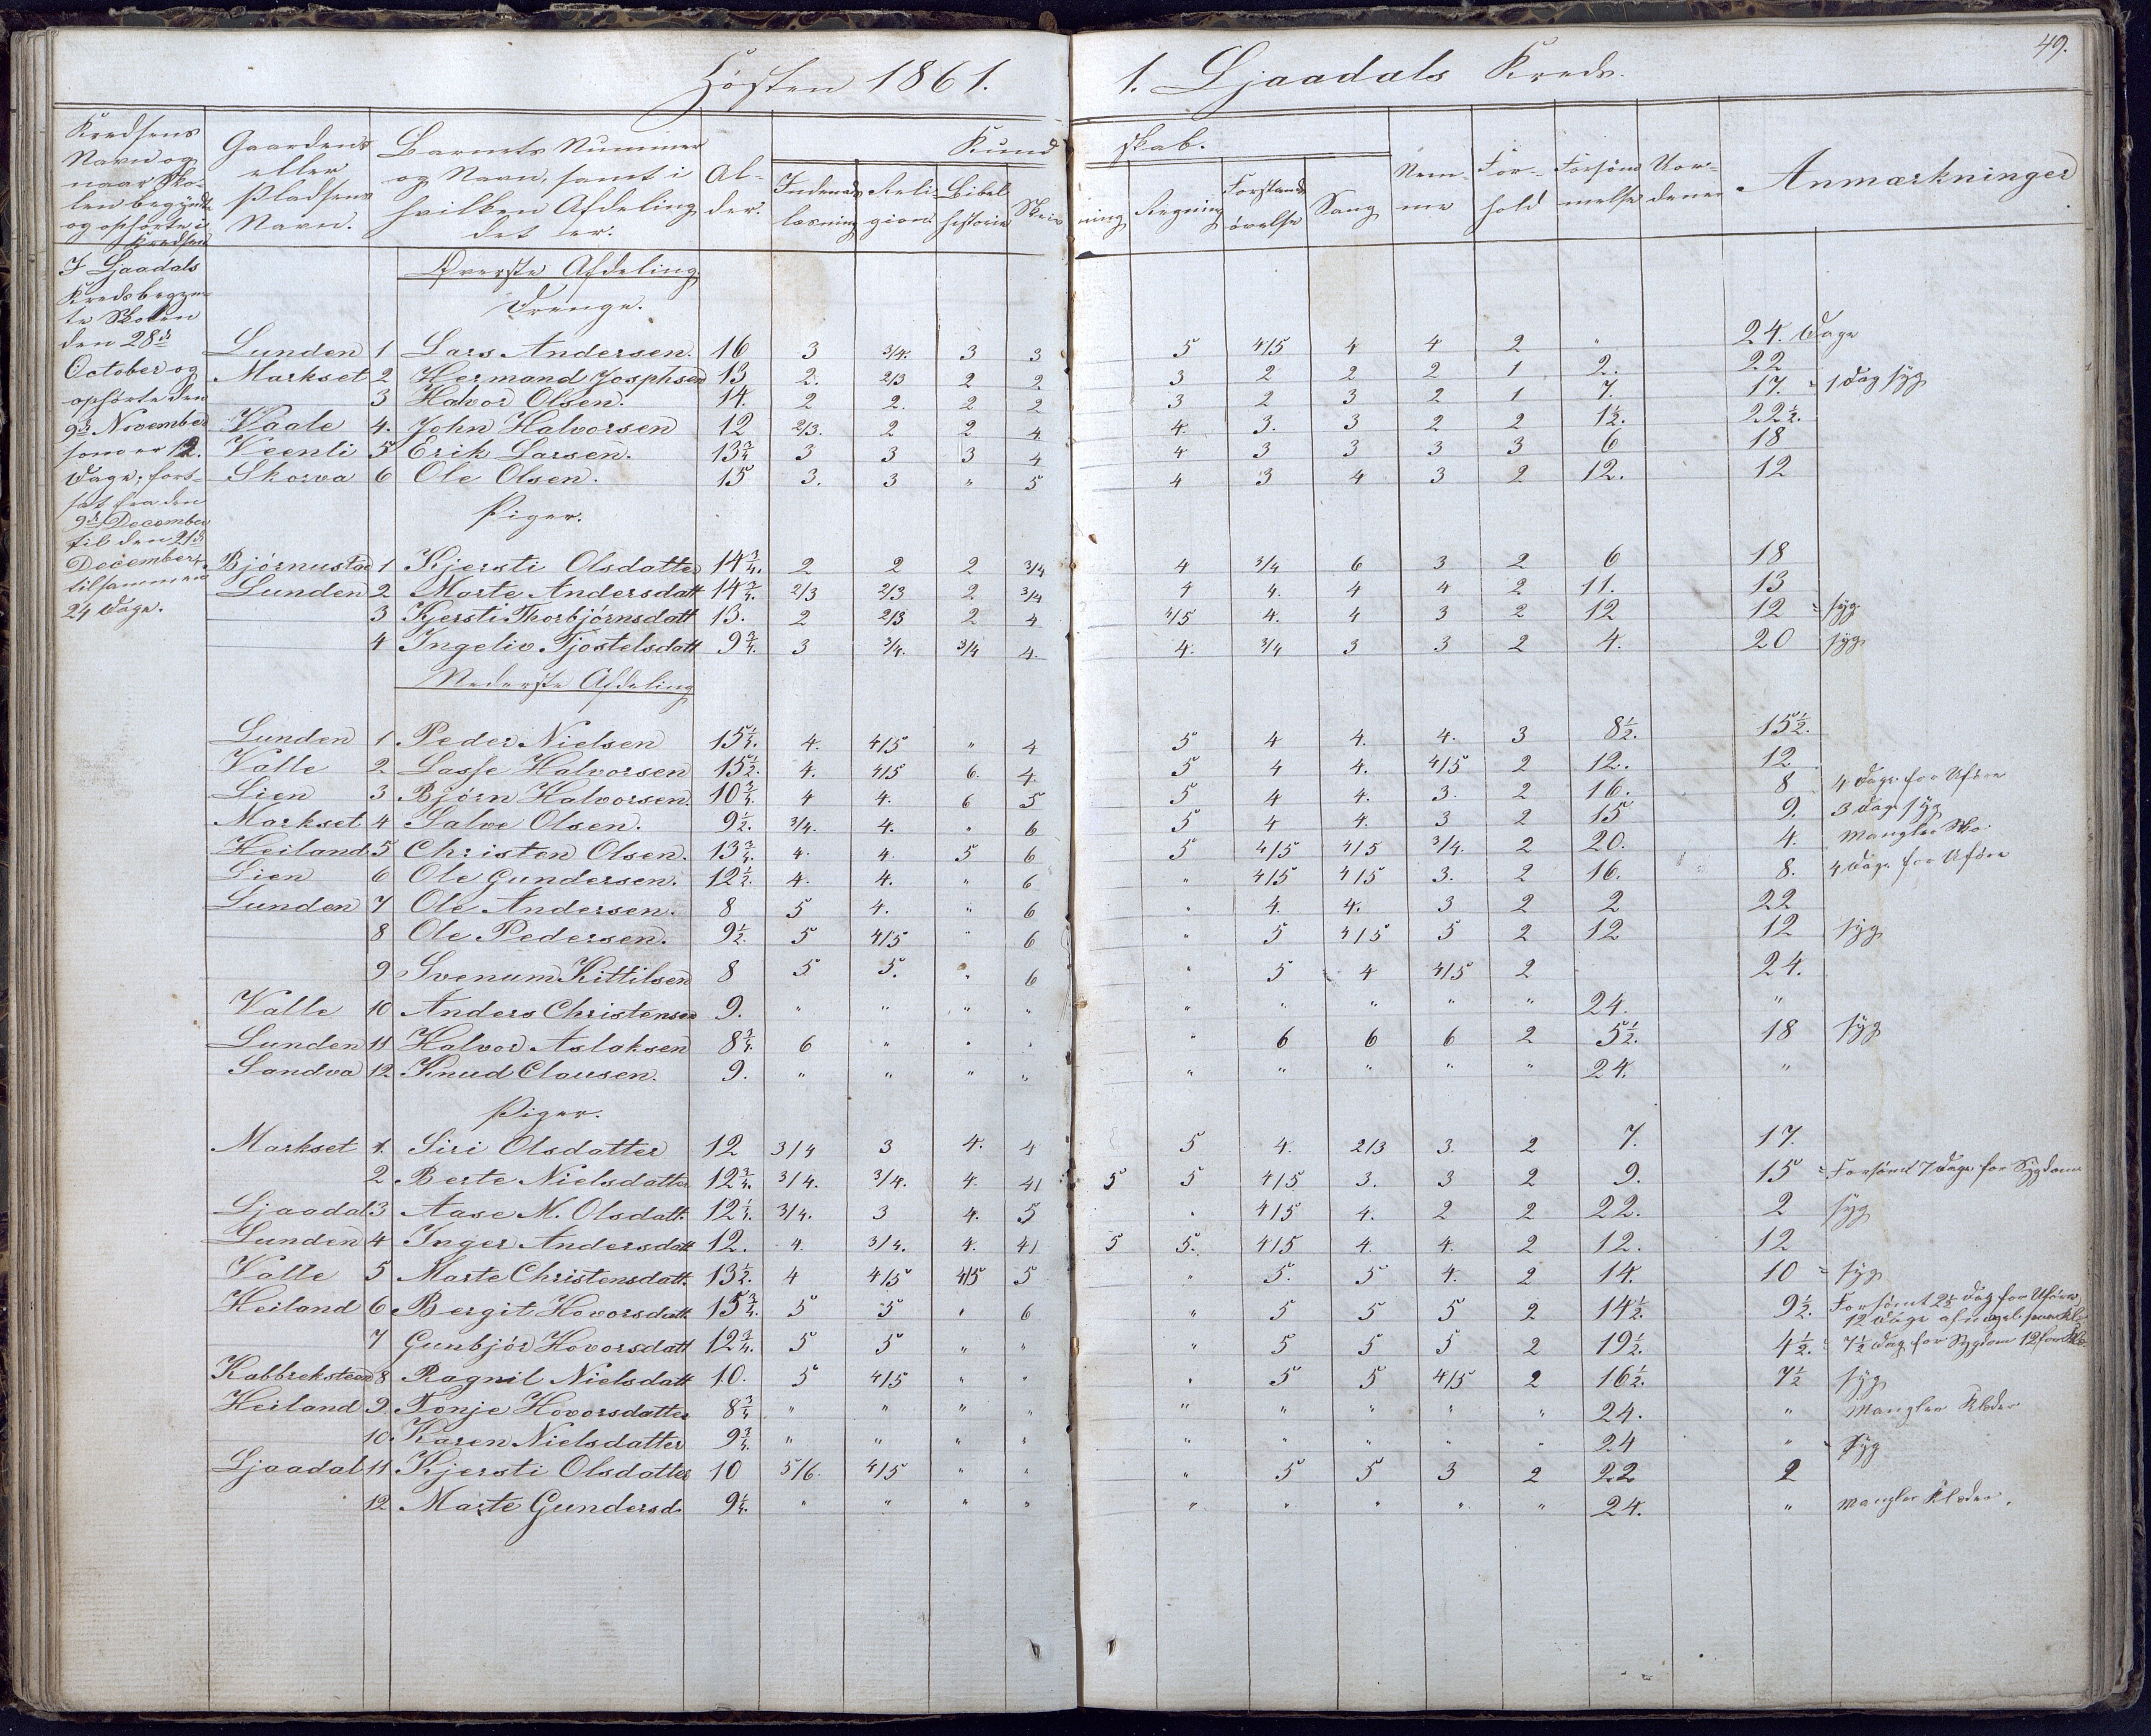 Hösten 1861.
1. Ljaadals Kreds.
49.
Kredsens Navn og naar Skolen begyndte og ophörte i Kredsen
Gaardens eller Pladsens Navn.
Barnets Nummer og Navn, samt i hvilken Afdeling det er.
Alder.
Kundskab.
Indenadslæsning
Religion
Bibelhistorie
Skrivning
Regning
Forstandsövelse
Sang
Nemme
Forhold
Forsömmelse
Anmærkninger
I Ljaadals
Kreds begyn-
te Skolen
den 28de
October og
ophörte den
9de November
som er 12.
Dage, fort-
sat fra den
9de December
til den 21de
December,
tilsammen
24 Dage.
Överste Afdeling
Drenge.
Lunden 1 Lars Andersen. 16 3 3/4. 3 3 5 4/5 4 4 2 " 24. Dage
Markset 2 Hermand Josphsen 13 2. 2/3 2 2 3 2 2 2 1 2. 22
3 Halvor Olsen. 14 2 2. 2 2 3 2 3 2 1 7. 17. = 1 Dag syg
Vaale 4. John Halvorsen 12 2/3. 2 2 4 4. 3. 3 2 2 1½. 22½.
Veenli 5 Erik Larsen. 13¾ 3 3 3 4 4 3 3 3 3 6 18
Skorva 6 Ole Olsen. 15 3. 3 " 5 4 3 4 3 2 12. 12
Piger.
Bjørnustad 1 Kjersti Olsdatter 14¾. 2 2 2 3/4 4 3/4 6 3 2 6 18
Lunden 2 Marte Andersdatt 14¾. 2/3 2/3 2 3/4 4 4. 4 4 2 11. 13
3 Kjersti Thorbjørnsdatt 13. 2 2/3 2 4 4/5 4. 4 3 2 12 12 = syg
4 Ingeliv Tjostelsdatt 9¾. 3 3/4. 3/4 4. 4. 3/4 3 3 2 4. 20 syg
Nederste Afdeling
Lunden 1 Peder Nielsen 15¼. 4. 4/5 " 4 5 4 4. 4. 3 8½. 15½.
Valle 2. Lasse Halvorsen 15½. 4. 4/5 6. 4. 5 4 4. 4/5 2 12. 12
Lien 3 Bjørn Halvorsen. 10¾ 4 4. 6 5 5 4 4. 3. 2 16. 8 4 Dage for Uföre
Markset 4 Salve Olsen. 9½. 3/4. 4. " 6 5 4 4. 3 2 15 9. 3 Dage syg
Heiland 5 Christen Olsen. 13¾. 4. 4. 5 6 5 4/5 4/5 3/4. 2 20. 4. Mangler Sko.
Lien 6 Ole Gundersen. 12½. 4. 4. " 6 " 4/5 4/5 3. 2 16. 8. 4 Dage for Uföre
Lunden 7 Ole Andersen. 8 5 4. " 6 " 4. 4. 3 2 2 22
8 Ole Pedersen. 9½. 5 4/5 " 6 " 5 4/5 5 2 12 12 syg
9 Svenum Kittilsen 8 5 5. " 6 " 5 4 4/5 2 24.
Valle 10 Anders Christensen 9. " " " " " " " " " 24. "
Lunden 11 Halvor Aslaksen 8¾. 6 " " " " 6 6 6 2 5½. 18 syg
Sandva 12. Knud Clausen. 9. " " " " " " " " " 24. "
Piger.
Markset 1. Siri Olsdatter 12 3/4 3 4. 4 5 4. 2/3 3. 2 7. 17.
2 Berte Nielsdatter 12¾. 3/4. 3/4. 4. 4/ 5 5 4/5 3. 3 2 9. 15 = Forsömt 7 Dage for Sygdom
Ljaadal 3 Aase M. Olsdatt. 12¼. 3/4. 3 4. 5 " 4/5 4. 2 2 22. 2 syg
Lunden 4 Inger Andersdatt 12. 4. 3/4. 4. 4/ 5 5. 4/5 4. 4. 2 12. 12
Valle 5 Marte Christensdatt. 13½. 4 4/5 4/5 5 " 5. 5 4. 2 14. 10 = syg
Heiland 6 Bergit Hovorsdatt 15¾. 5 5 " 6 " 5 5 5 2 14½. 9½. Forsömt 2½ Dag for Uföre,
12 Dage
7 Gunbjör Hovorsdatt 12¾. 5 5 " " " 5 5 5 2 19½. 4½. 7½ Dag for Sygdom 12 for
Kabbreksteen 8 Ragnil Nielsdatt 10. 5 4/5 " " " 5 5 4/5 2 16½. 7½ syg
Heiland 9 Tonje Hovorsdatter 8¾ " " " " " " " " " 24. " Mangler Klæder
10. Karen Nielsdatter 9¾. " " " " " " " " " 24 " Syg
Ljaadal 11 Kjersti Olsdatter 10 5/6. 4/5 " " " 5 5 3 2 22 2
12 Marte Gundersd. 9¼. " " " " " " " " " 24. " Mangler Klæder.